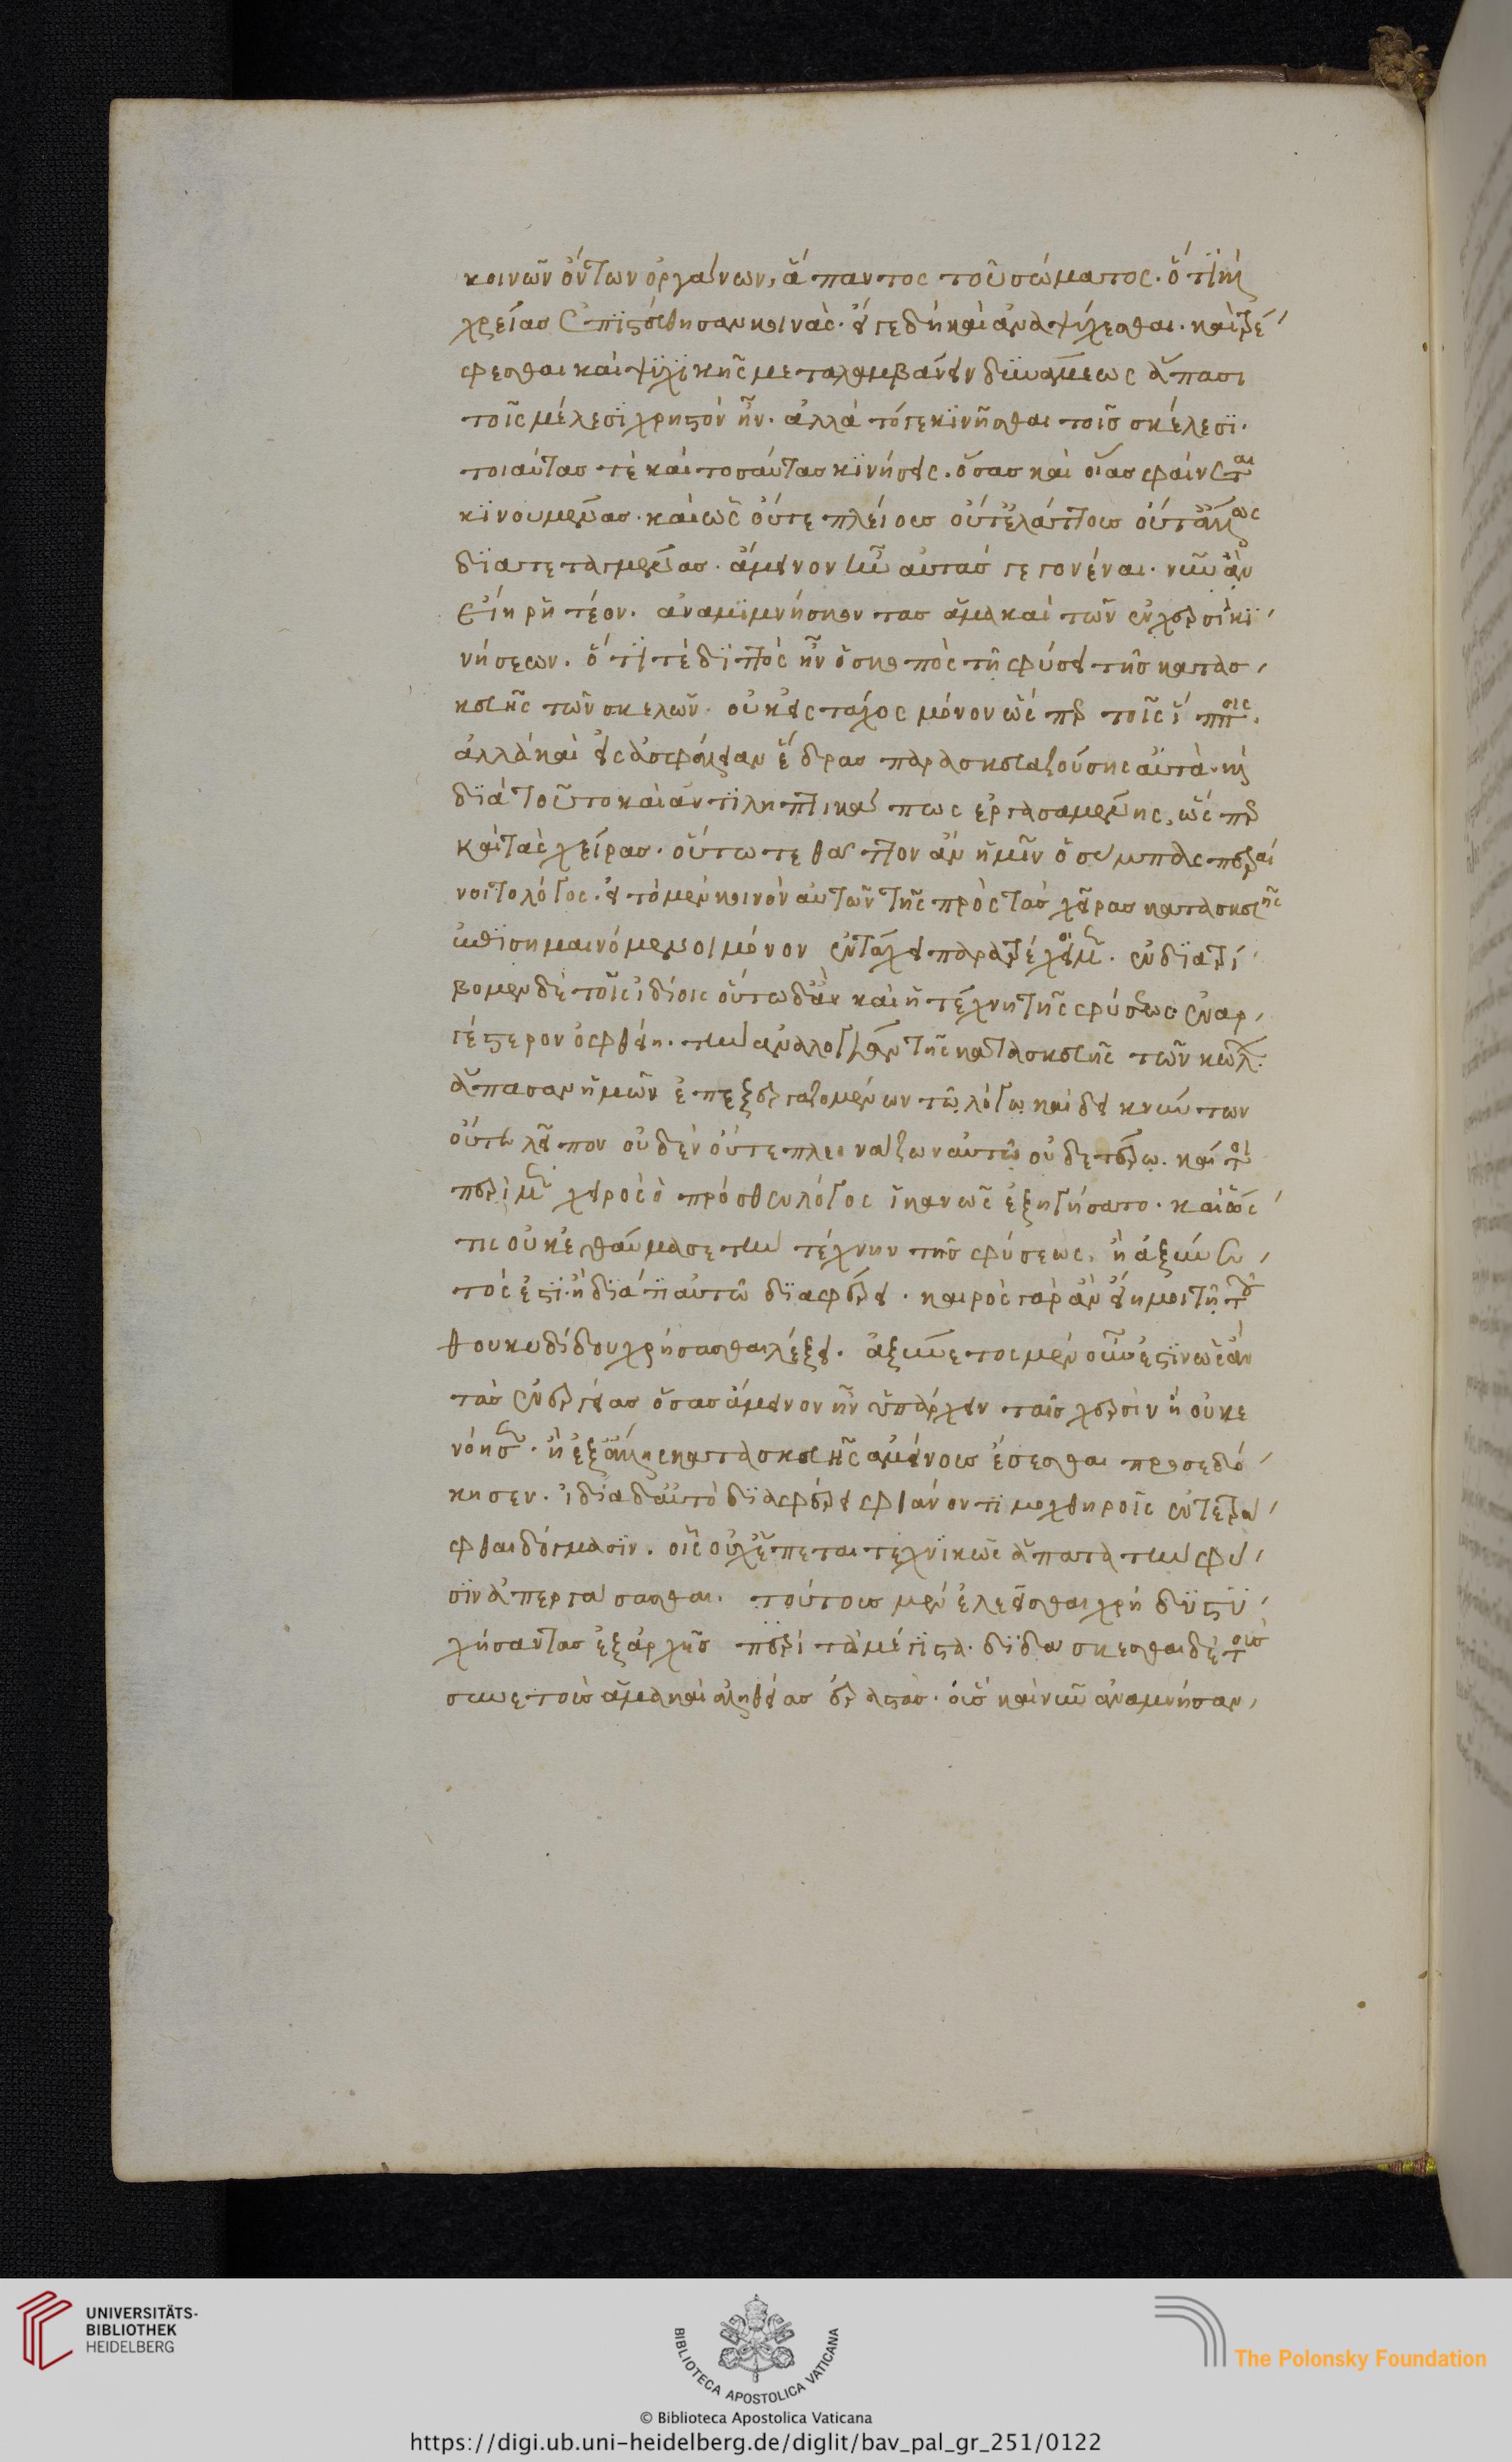 κοινῶν ὄντων ὀργάνων, ἅπαντος τοῦ σώματος. ὅτι καὶ
χρείας ἐπιστεύθησαν κοινάς. εἴγε δὴ καὶ ἀναψύχεσθαι. καὶ τρέ
φεσθαι καὶ ψυχικῆς μεταλαμβάνειν δυνάμεως ἅπασι
τοῖς μέλεσι χρηστὸν ἦν. ἀλλὰ τό γε κινῆσθαι τοῖς σκέλεσι.
τοιαύτας τὲ καὶ τοσαύτας κινήσεις. ὅσας καὶ οἵας φαίνεται
κινουμένας. καὶ ὡς οὔτε πλείους οὔτ' ἐλάττους οὔτ' ἄλλως
διατεταγμένας. ἄμεινον ἦν αὐτὰς γεγονέναι. νῦν ἂν
εἴη ῥητέον. ἀναμιμνήσκοντας ἅμα καὶ τῶν ἐν χερσὶ κι
νήσεων. ὅτι τὲ διττὸς ἦν ὁ σκοπὸς τῆ φύσει τῆς κατασ
κευῆς τῶν σκελῶν. οὐκ εἰς τάχος μόνον ὥσπερ τοῖς ἵπποις.
ἀλλὰ καὶ εἰς ἀσφάλειαν ἕδρας παρασκευαζούσης αὐτά. καὶ
διὰ τοῦτο καὶ ἀντιληπτικά πως ἐργασαμένης, ὥσπερ
καὶ τὰς χεῖρας. οὕτω τε θᾶττον ἂν ἡμῖν ὁ σύμπας περαί
νοιτο λόγος. εἰ τὸ μὲν κοινὸν αὐτῶν τῆς πρὸς τὰς χεῖρας κατασκευῆς
αὖθι σημαινόμενοι μόνον ἐν τάχει παρατρέχοιμεν. ἐνδιατρί
βομεν δὲ τοῖς ἰδίοις οὕτω δ' ἂν καὶ ἡ τέχνη τῆς φύσεως ἐναρ
γέστερον ὀφθείη. τὴν ἀναλογίαν τῆς κατασκευῆς τῶν κώλων
ἅπασαν ἡμῶν ἐπεξεργαζομένων τῶ λόγω καὶ δεικνύντων
οὔτε λεῖπον οὐδὲν οὔτε πλεονάζων αὐτῶ οὐδετέρω. καίτοι
περὶ μὲν χειρὸς ὁ πρόσθεν λόγος ἱκανῶς ἐξηγήσατο. καὶ ὥς
τις οὐκ ἐθαύμασε τὴν τέχνην τῆς φύσεως, ἢ ἀξύνε
τός ἐστι ἢ ἰδία τι αὐτῶ διαφέρει. καιρὸς γὰρ ἂν εἴη μοι τῆ τοῦ
θουκυδίδου χρήσασθαι λέξει. ἀξύνετος μὲν οὖν ἐστὶν ὡς ἂν
τὰς ἐνεργείας ὅσας ἄμεινον ἦν ὑπάρχειν ταῖς χερσὶν ἢ οὐκ ἐ
νόησεν. ἢ ἐξ ἄλλης κατασκευῆς ἀμείνους ἔσεσθαι προσεδό
κησεν. ἰδία δ' αὐτὸ διαφέρει φθάνοντι μοχθηροῖς ἐντετρά
φθαι δόγμασιν. οἷς οὐχ ἕπεται τεχνικῶς ἅπαντα τὴν φύ
σιν ἀπεργάσασθαι. τούτους μὲν ἐλεεῖσθαι χρὴ δυστυ
χήσαντας ἐξ ἀρχῆς περὶ τὰ μέγιστα. διδάσκεσθαι δὲ τοὺς
συνετοὺς ἅμα καὶ ἀληθείας ἐραστάς. οὓς καὶ νῦν ἀναμνήσαν
UNIVERSITÄTS-
BIBLIOTHEK
HEIDELBERG
BIBLIOTECA APOSTOLICA VATICANA
The Polonsky Foundation
© Biblioteca Apostolica Vaticana
https://digi.ub.uni-heidelberg.de/diglit/bav_pal_gr_251/0122